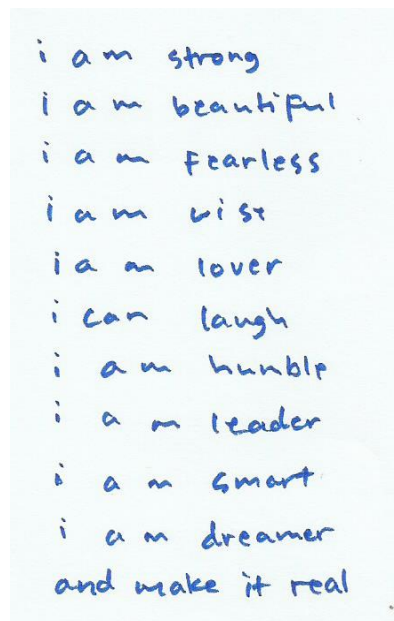 i am strong
i am beautiful
i am fearless
i am wise
i am lover
i can laugh
i am humble
i am leader
i am smart
i am dreamer
and make it real